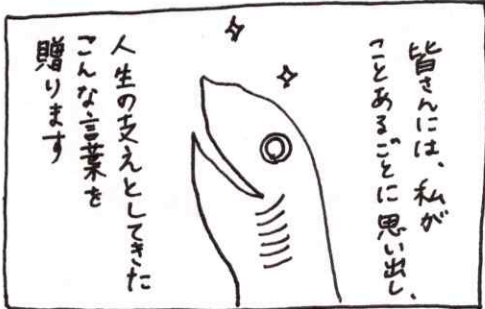 皆さんには、私が
ことあるごとに思い出し、
人生の支えとしてきた
こんな言葉を
贈ります